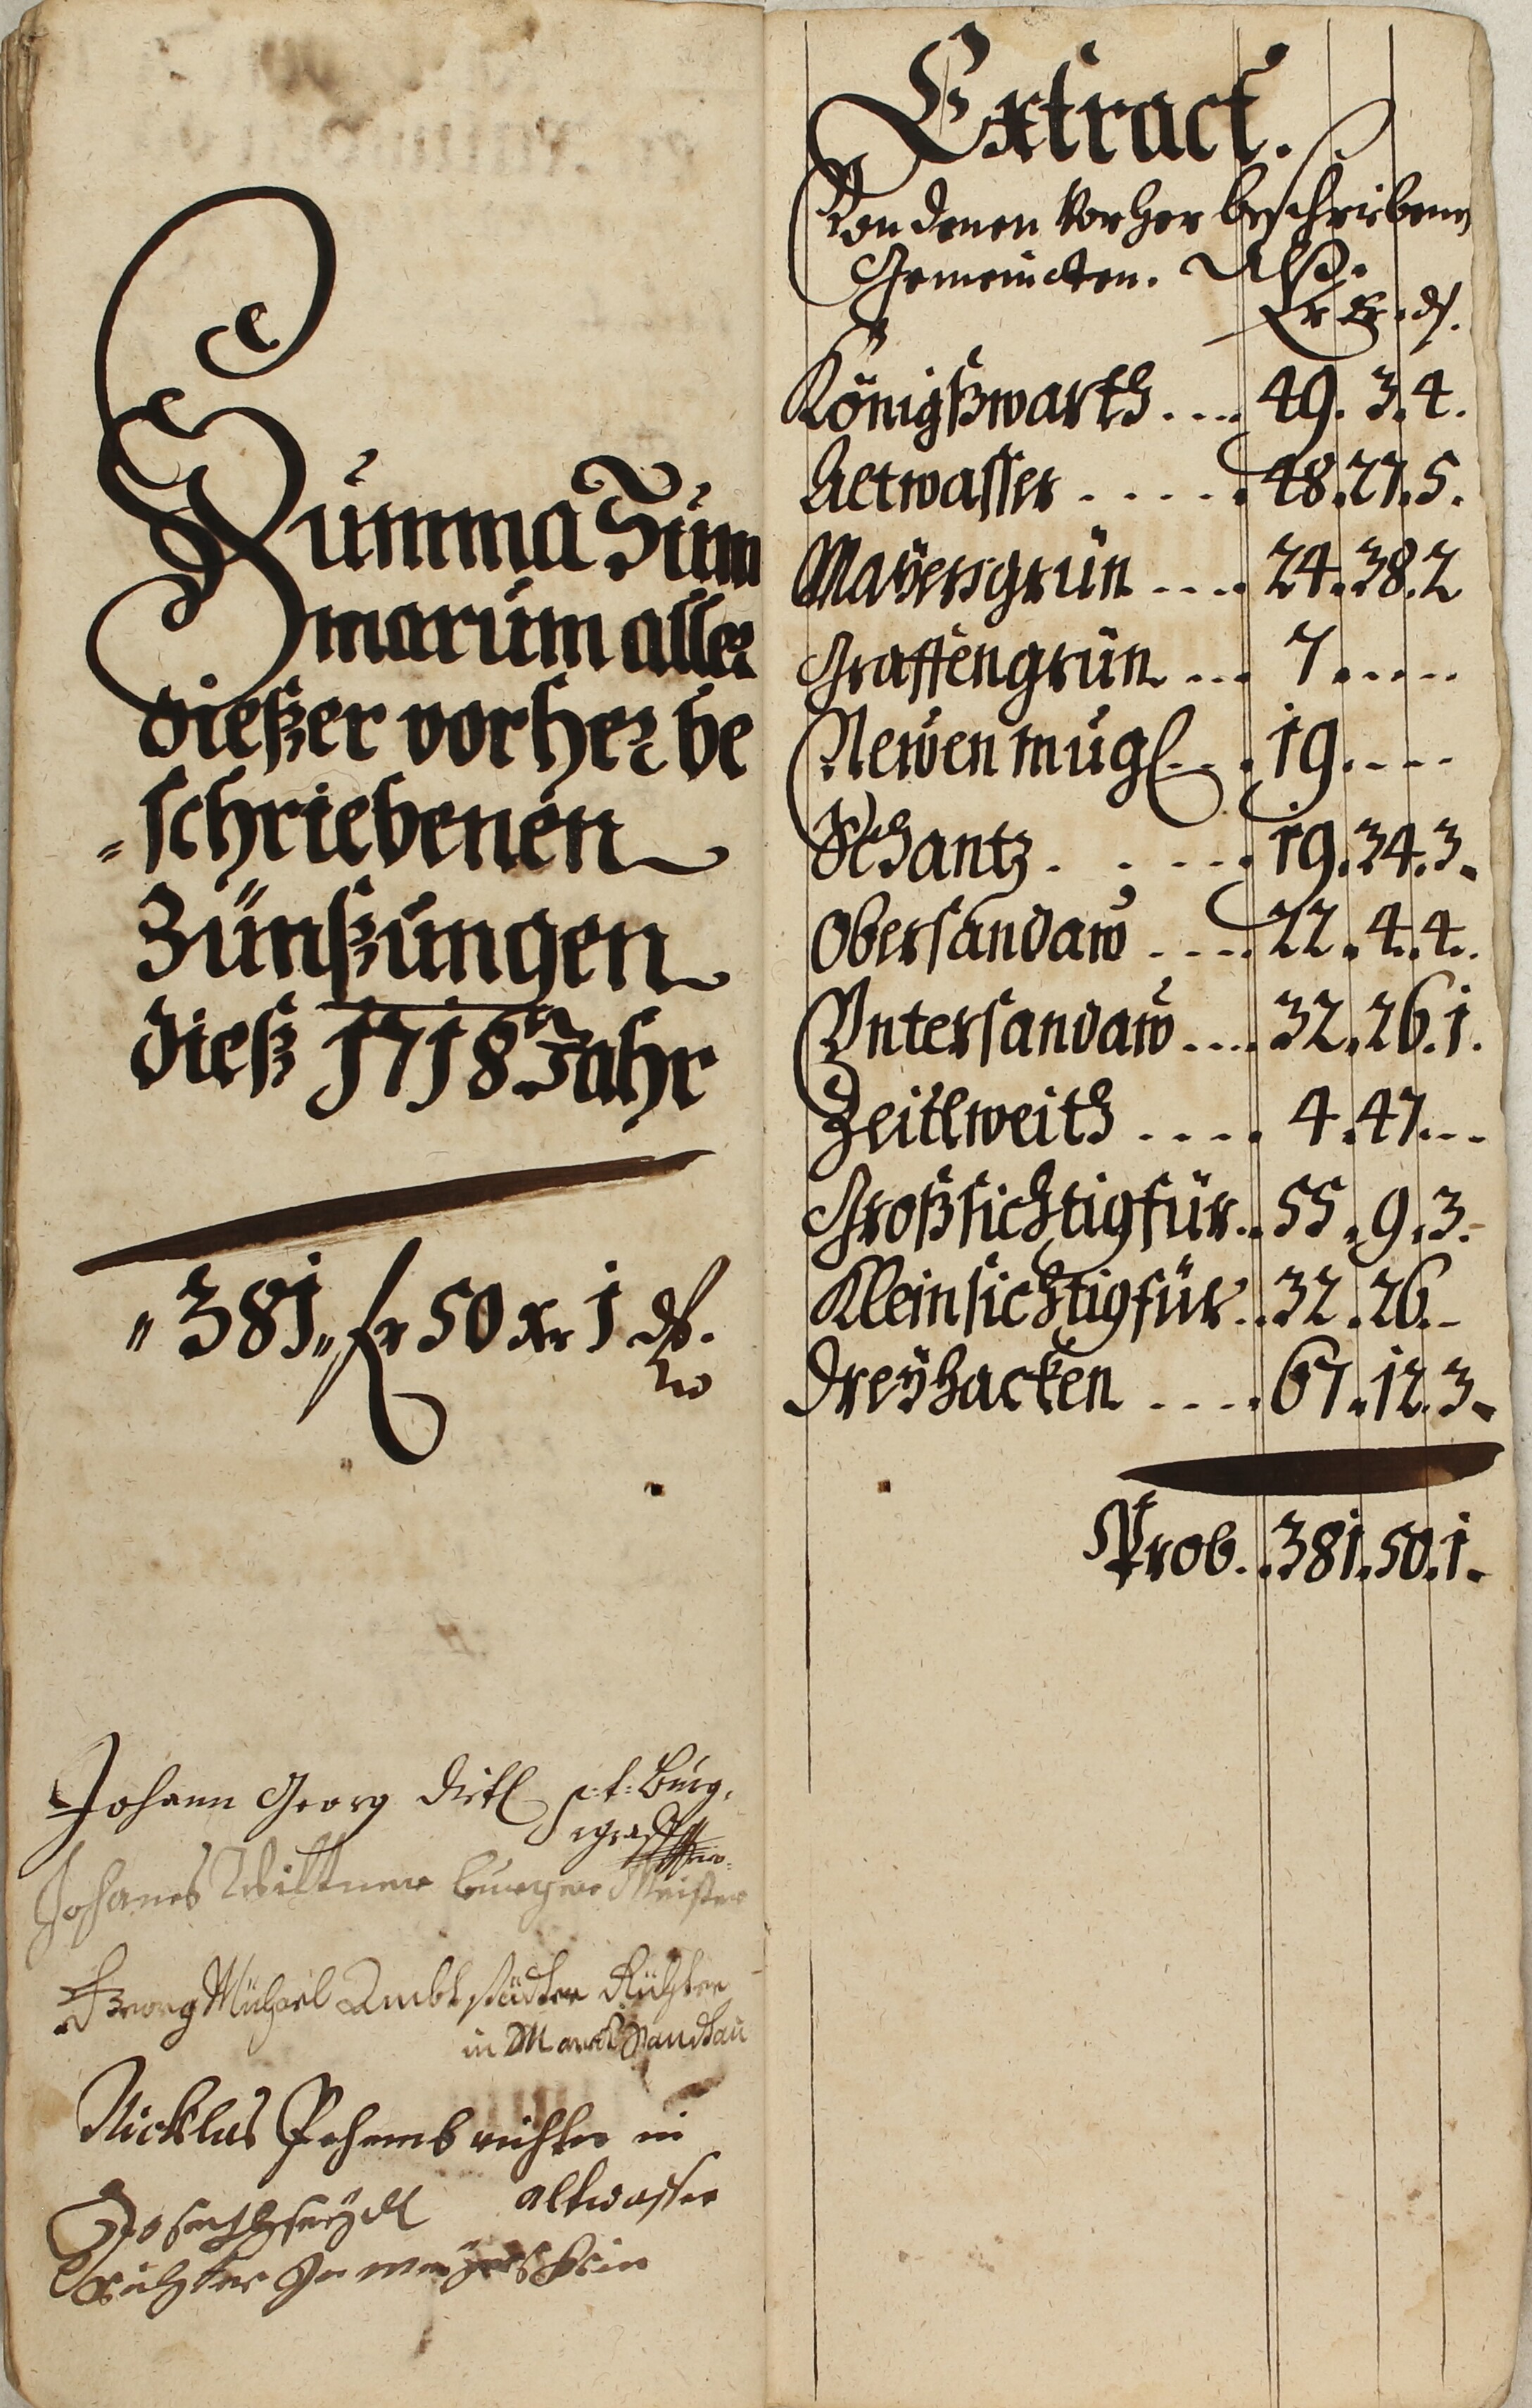 Summa Sum
marum aller
dießer vorher be
=schriebenen
Zünßungen
dieß 1718.n Jahr
" 381 " fr 50 xr 1 ₰.
Johann Georg Dietl p.t. Burg,
graff
Johanes Wiltner burger Meister
Georg Michael Ambtstädter Richter
in Marck Sandau
Nicklus richter in
altwasser
Joseph seÿdl
Richter In
Extract.
Von denen Vorher beschriebene
Gemeindten. Alß.
fr xr. ₰.
Königßwarth .... 49. 3. 4.
Altwasser ..... 48. 27. 5.
Maÿersgrün .... 24. 38. 2
Graffengrün ... 7 .....
Newen mugl ... 19. ....
Schantz. .... 19. 34. 3.
Obersandaw .... 22. 4. 4.
Vntersandaw .... 32. 26. 1.
Zeitlweith .... 4. 47. ...
Großsichtigfür.. 55. 9. 3.
Kleinsichtigfür.. 32. 26. -
Dreÿhacken .... 67. 12. 3.
Prob. . 381. 50. 1.